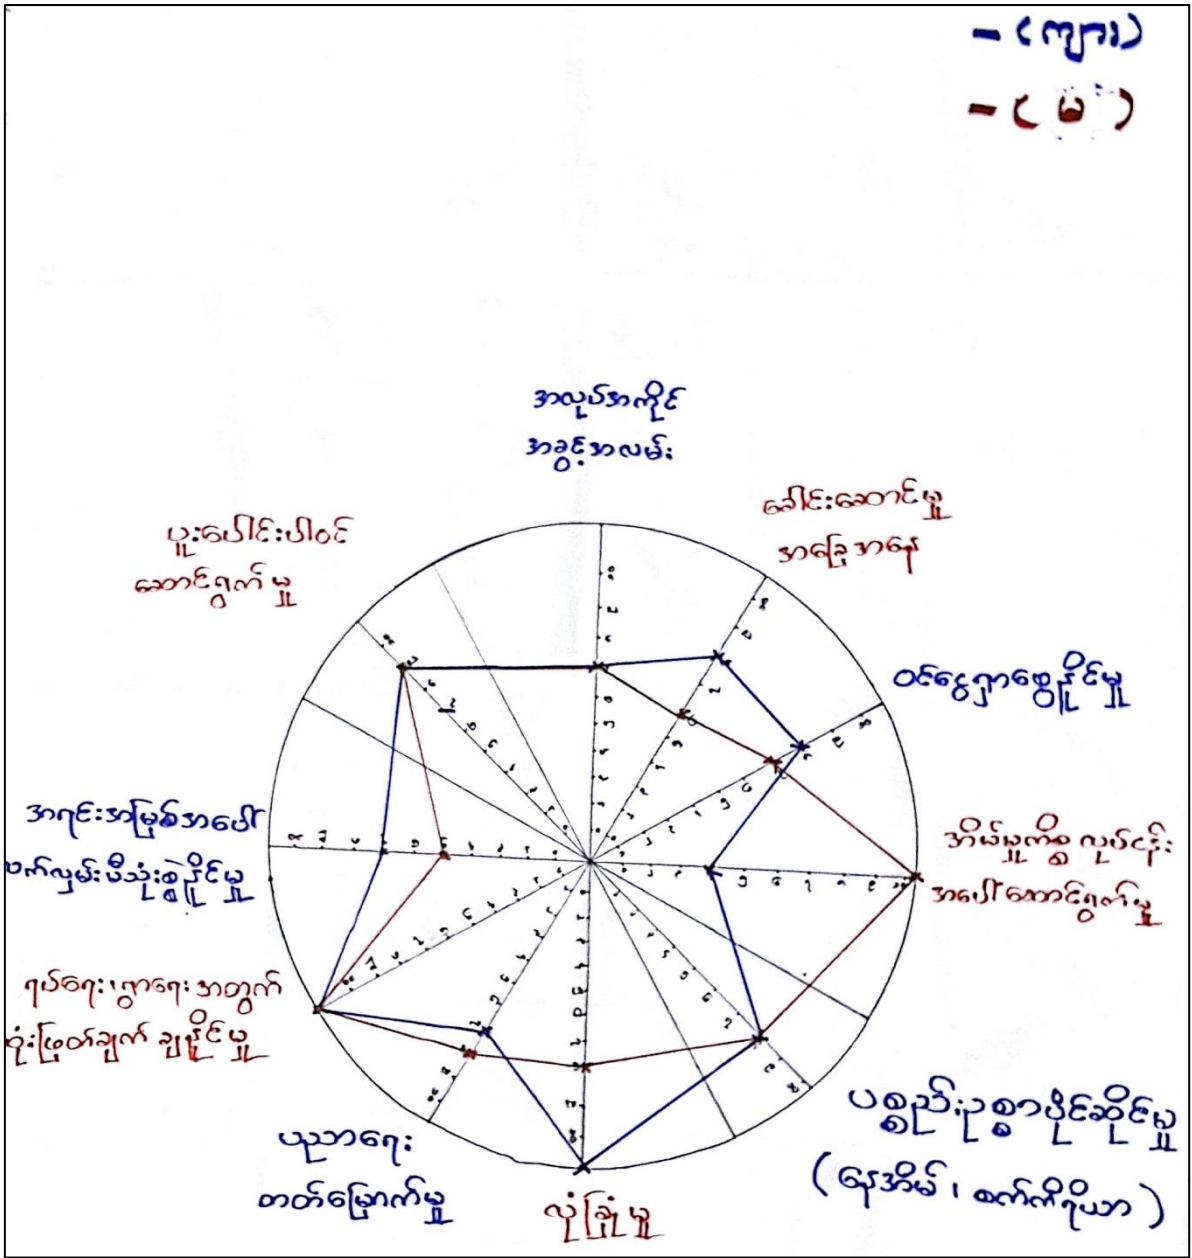 - (ကျား)
- (မ)
အလုပ်အကိုင်
အခွင့်အလမ်း
ခေါင်းဆောင်မှု
အခြေအနေ
ဝင်ငွေရှာဖွေနိုင်မှု
အိမ်မှုကိစ္စ လုပ်ငန်း
အပေါ် ဆောင်ရွက်မှု
ပစ္စည်းဥစ္စာပိုင်ဆိုင်မှု
(နေအိမ်၊ စက်ကိရိယာ)
လုံခြုံမှု
ပညာရေး
တတ်မြောက်မှု
ရပ်ရေး၊ရွာရေး အတွက်
ဆုံးဖြတ်ချက် ချနိုင်မှု
အရင်းအမြစ်အပေါ်
လက်လှမ်းမီသုံးစွဲနိုင်မှု
ပူးပေါင်းပါဝင်
ဆောင်ရွက်မှု